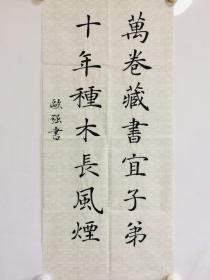 萬卷藏書宜子弟
十年種木長風煙
歐強書